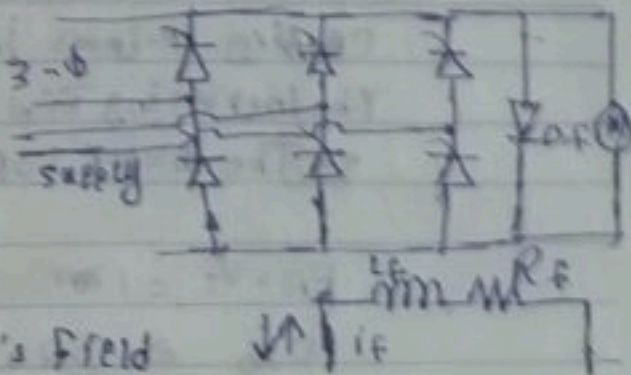 3-ϕ
supply
D.F
M
LF
RF
's Field
↓↑ if